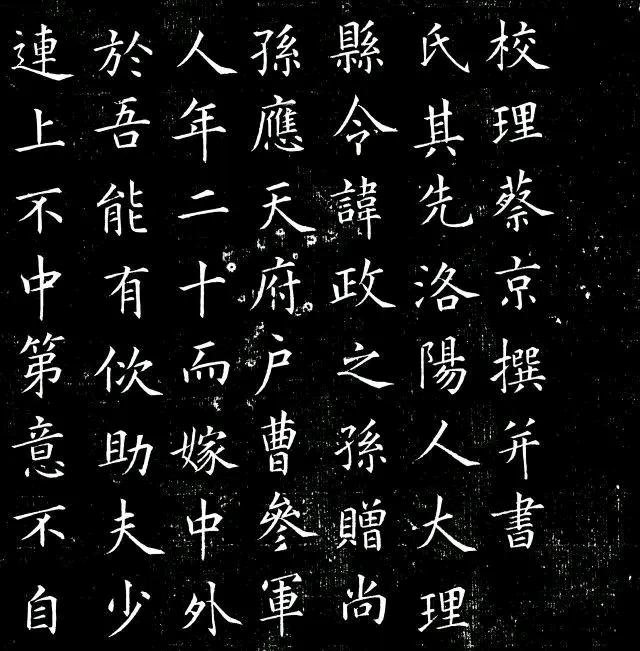 校理蔡京撰并書
氏其先洛陽人大理
縣令諱政之孫贈尚
孫應天府户曹參軍
人年二十而嫁中外
於吾能有佽助夫少
連上不中第意不自